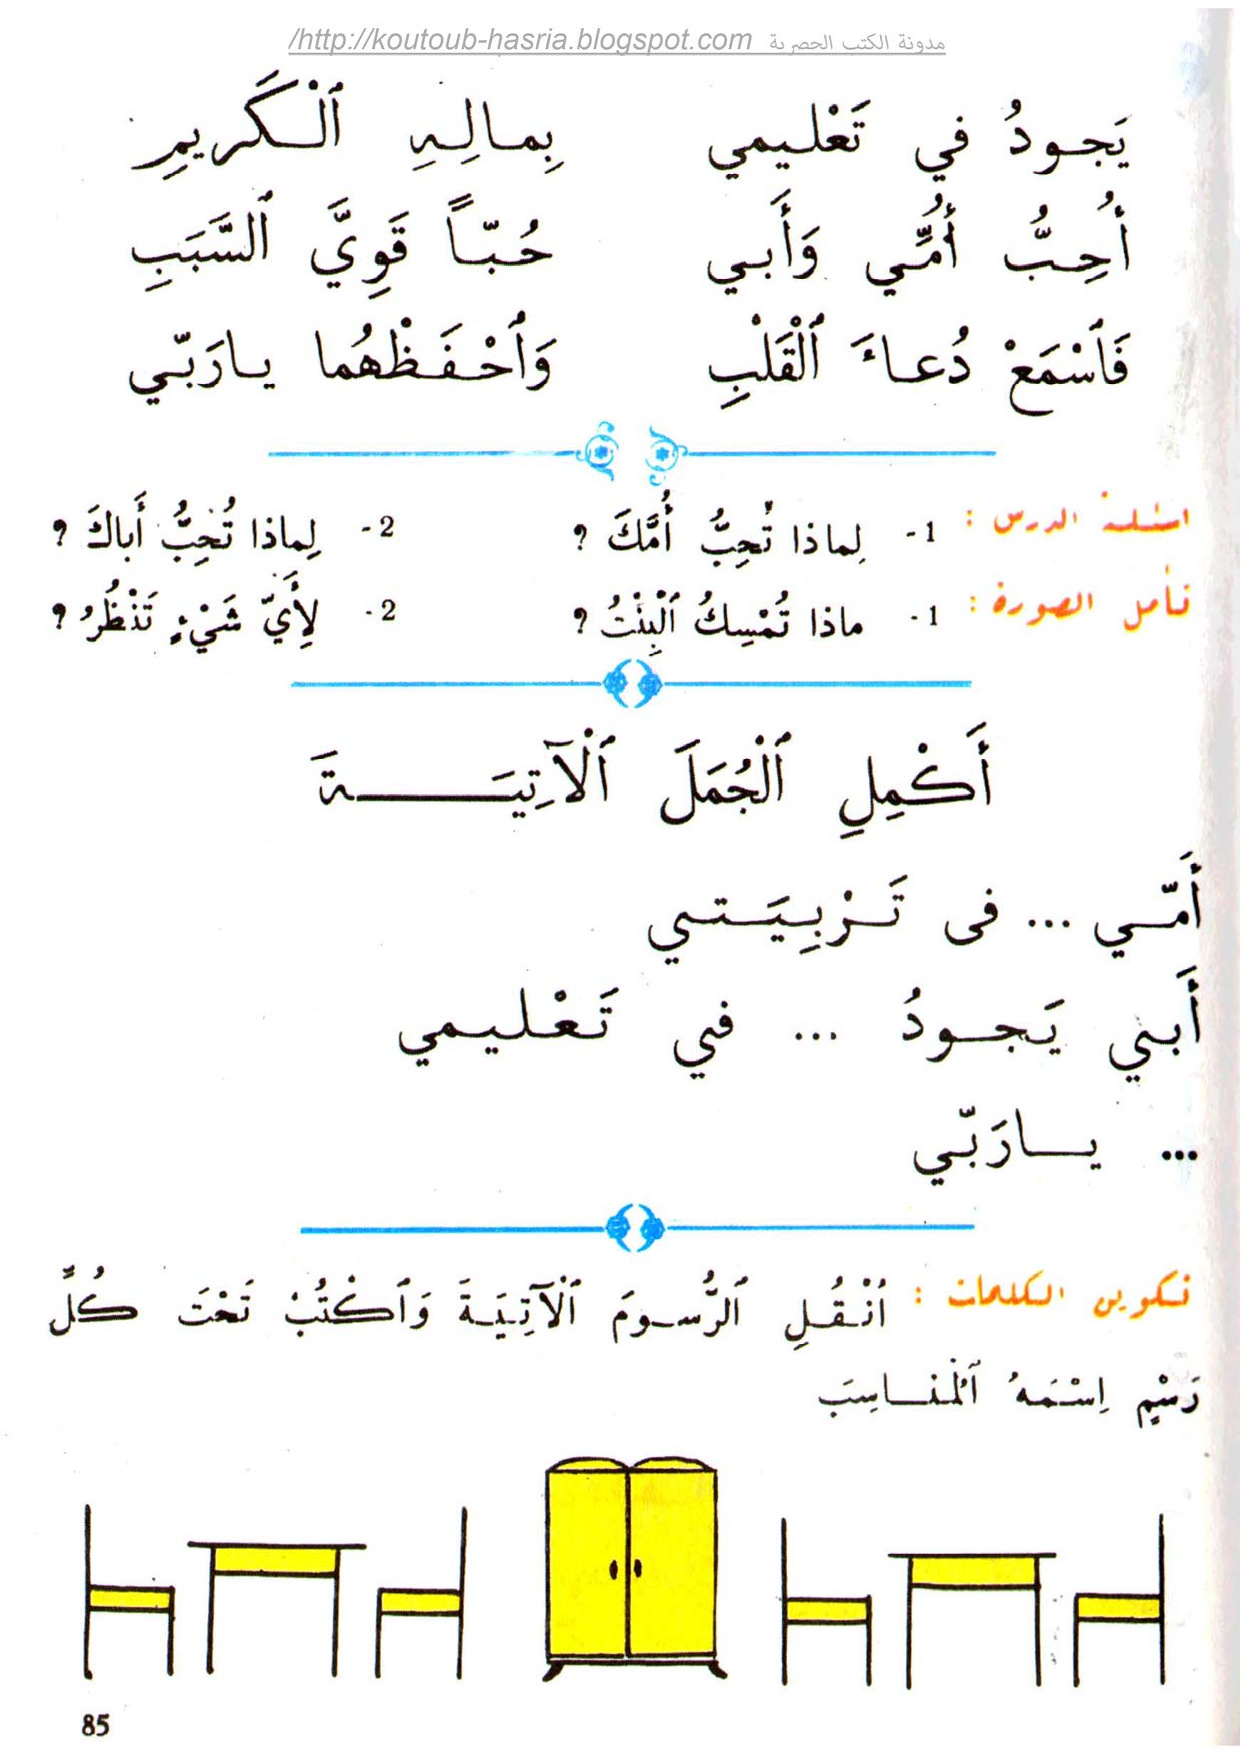 مدونة الكتب الحصرية http://koutoub-hasria.blogspot.com/
يَجـودُ في تَعْلـيمي بِمـالِـهِ ٱلْـكَريمِ
أُحِـبُّ أُمِّـي وَأَبـي حُـبّـاً قَوِيَّ ٱلسَّبَبِ
فَٱسْمَعْ دُعـاءَ ٱلْقَلْبِ وَٱحْـفَـظْهُما يـارَبّـي
اسئـلـة الدرس : 1- لِماذا تُحِبُّ أُمَّكَ ؟ 2- لِماذا تُحِبُّ أَباكَ ؟
تأمل الصورة : 1- ماذا تُمْسِكُ ٱلْبِنْتُ ؟ 2- لِأَيِّ شَيْءٍ تَنْظُرُ ؟
أَكْـمِلِ ٱلْجُمَلَ ٱلْآتِيَـــــةَ
أُمّـي ... فى تَـرْبِـيَـتـي
أَبـي يَـجـودُ ... في تَـعْـليـمي
... يــارَبّـي
تـكوين الكلمات : اُنْـقُـلِ ٱلرُّسـومَ ٱلْآتِيَـةَ وَٱكْتُبْ تَحْتَ كُلِّ
رَسْمٍ اِسْـمَـهُ ٱلْمُنـاسِبَ
85